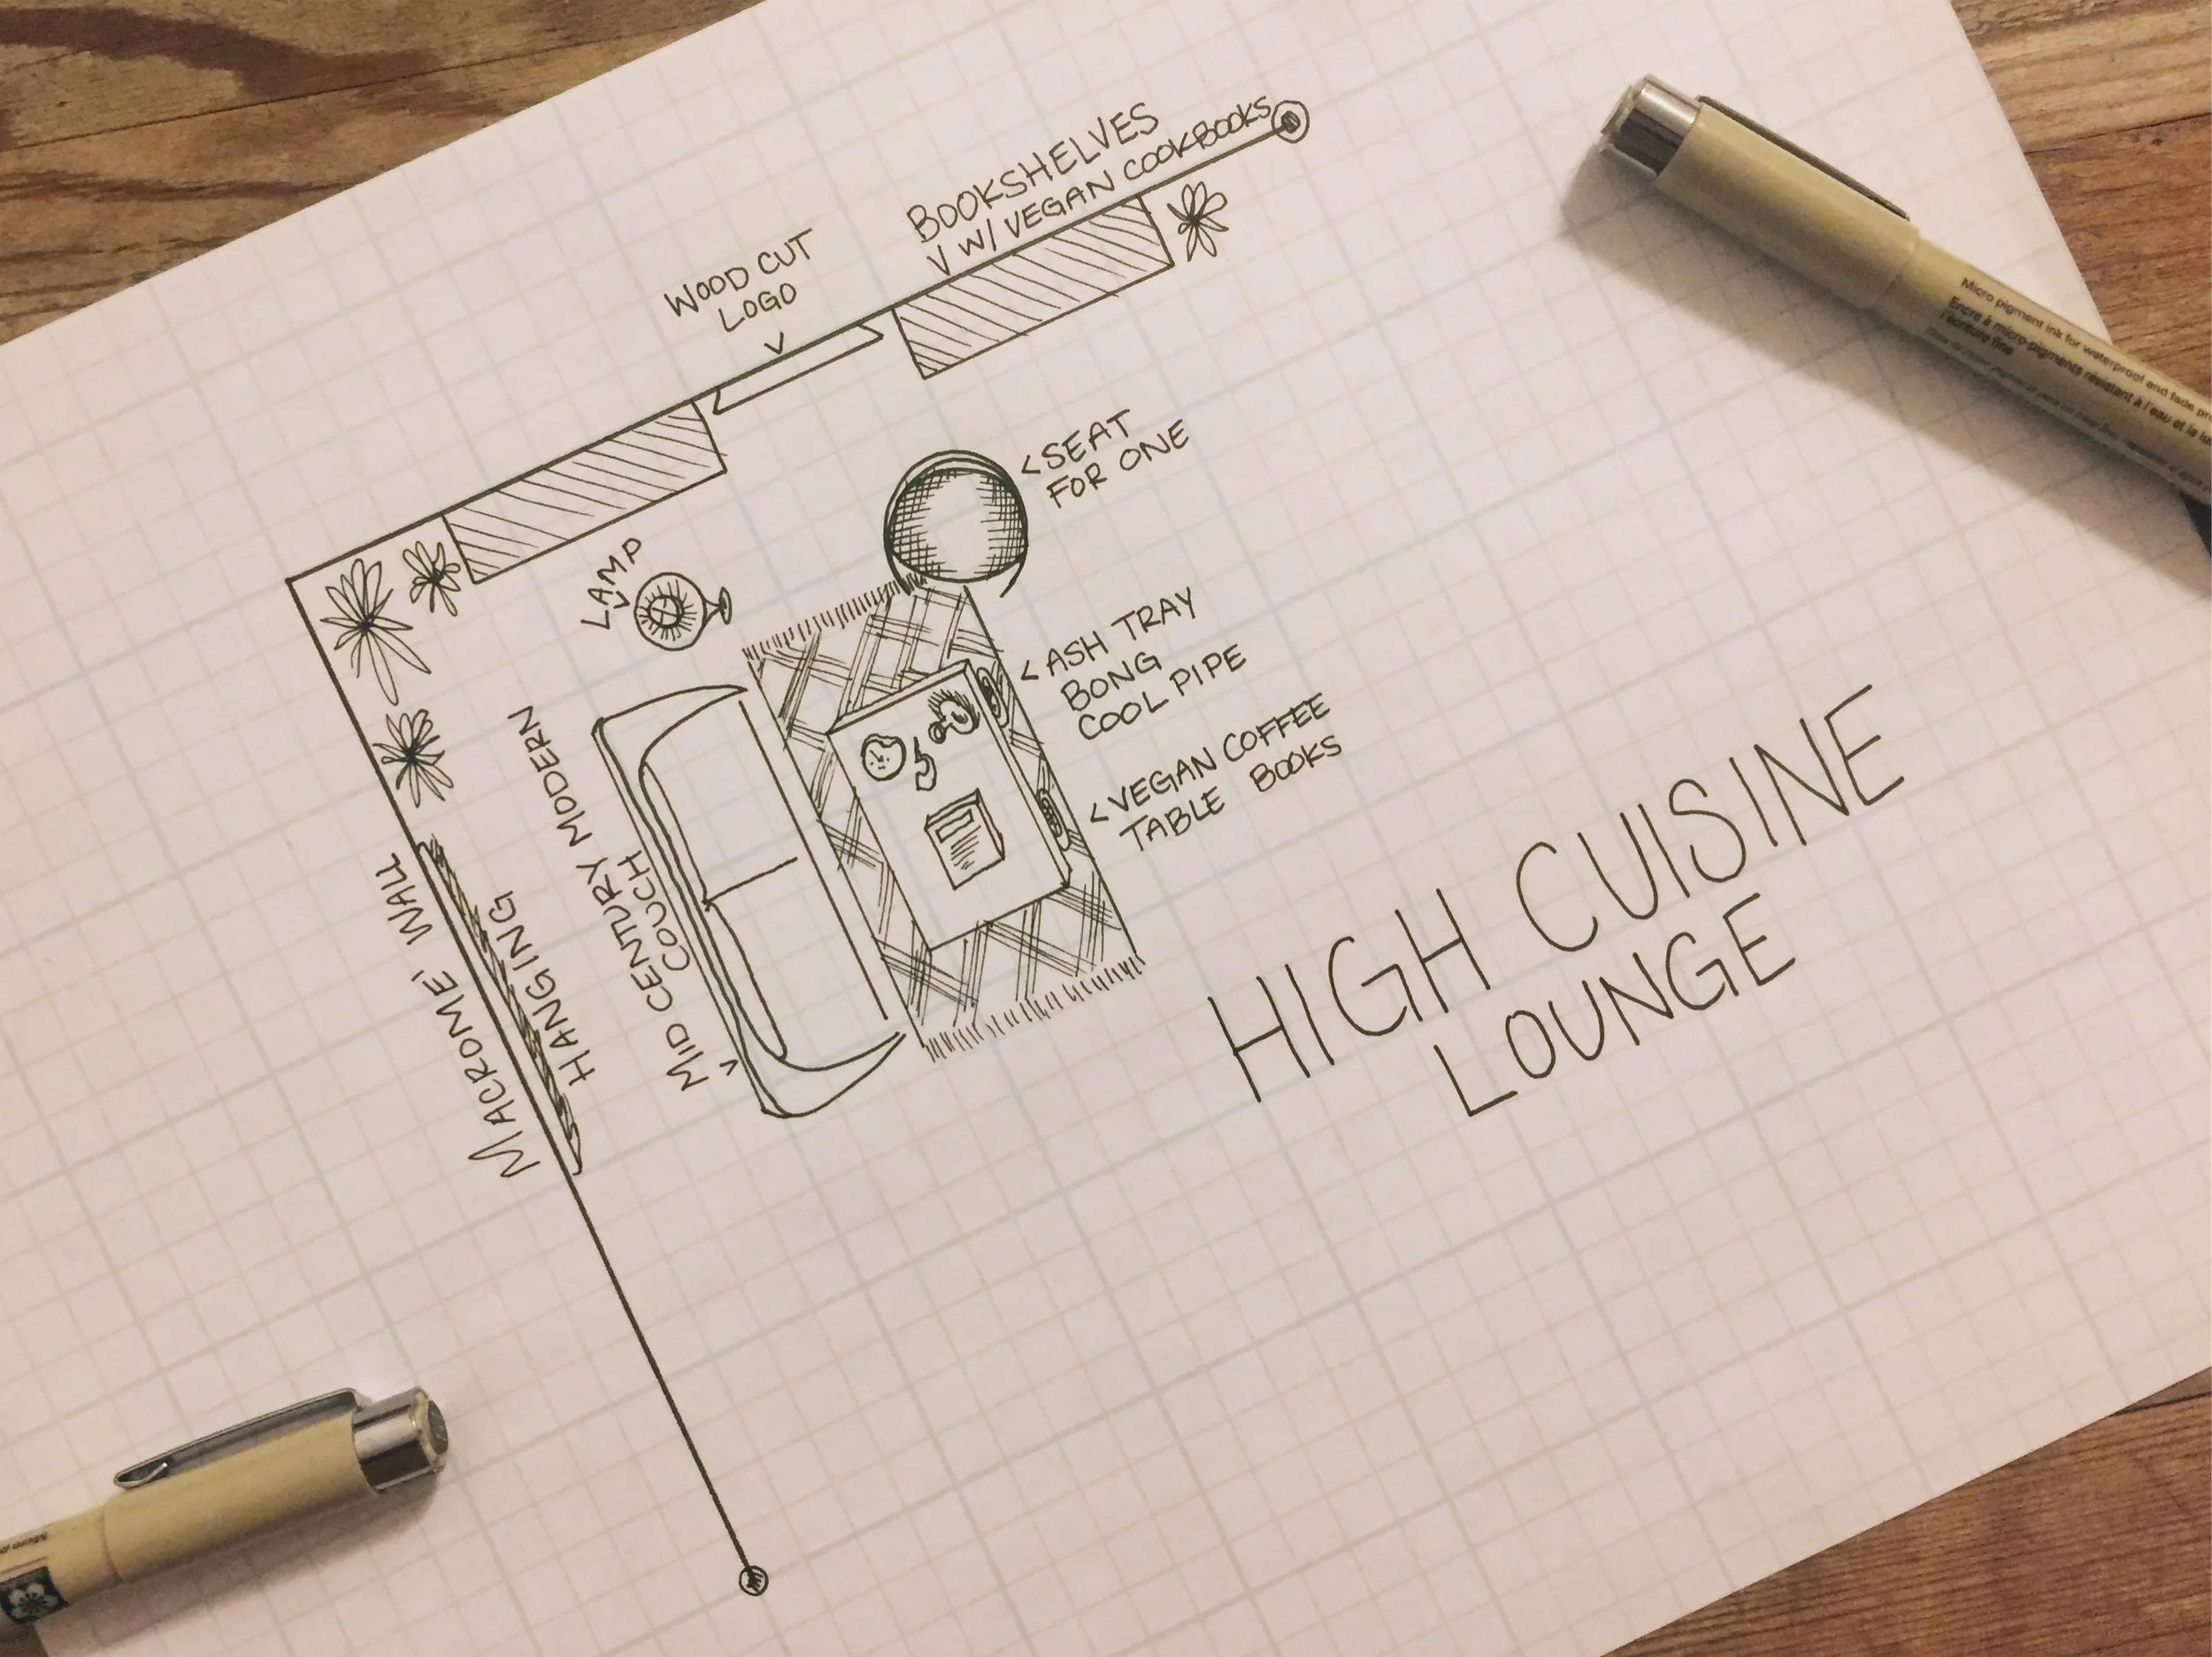 BOOKSHELVES
W/ VEGAN COOKBOOKS
WOOD CUT
LOGO
SEAT
FOR ONE
LAMP
ASH TRAY
BONG
COOL PIPE
VEGAN COFFEE
TABLE BOOKS
MID CENTURY MODERN
COUCH
MACROME' WALL
HANGING
HIGH CUISINE
LOUNGE
Micro pigment ink for waterproof and fade
Encre à micro-pigments résistant à l'eau et la
l'écriture fine